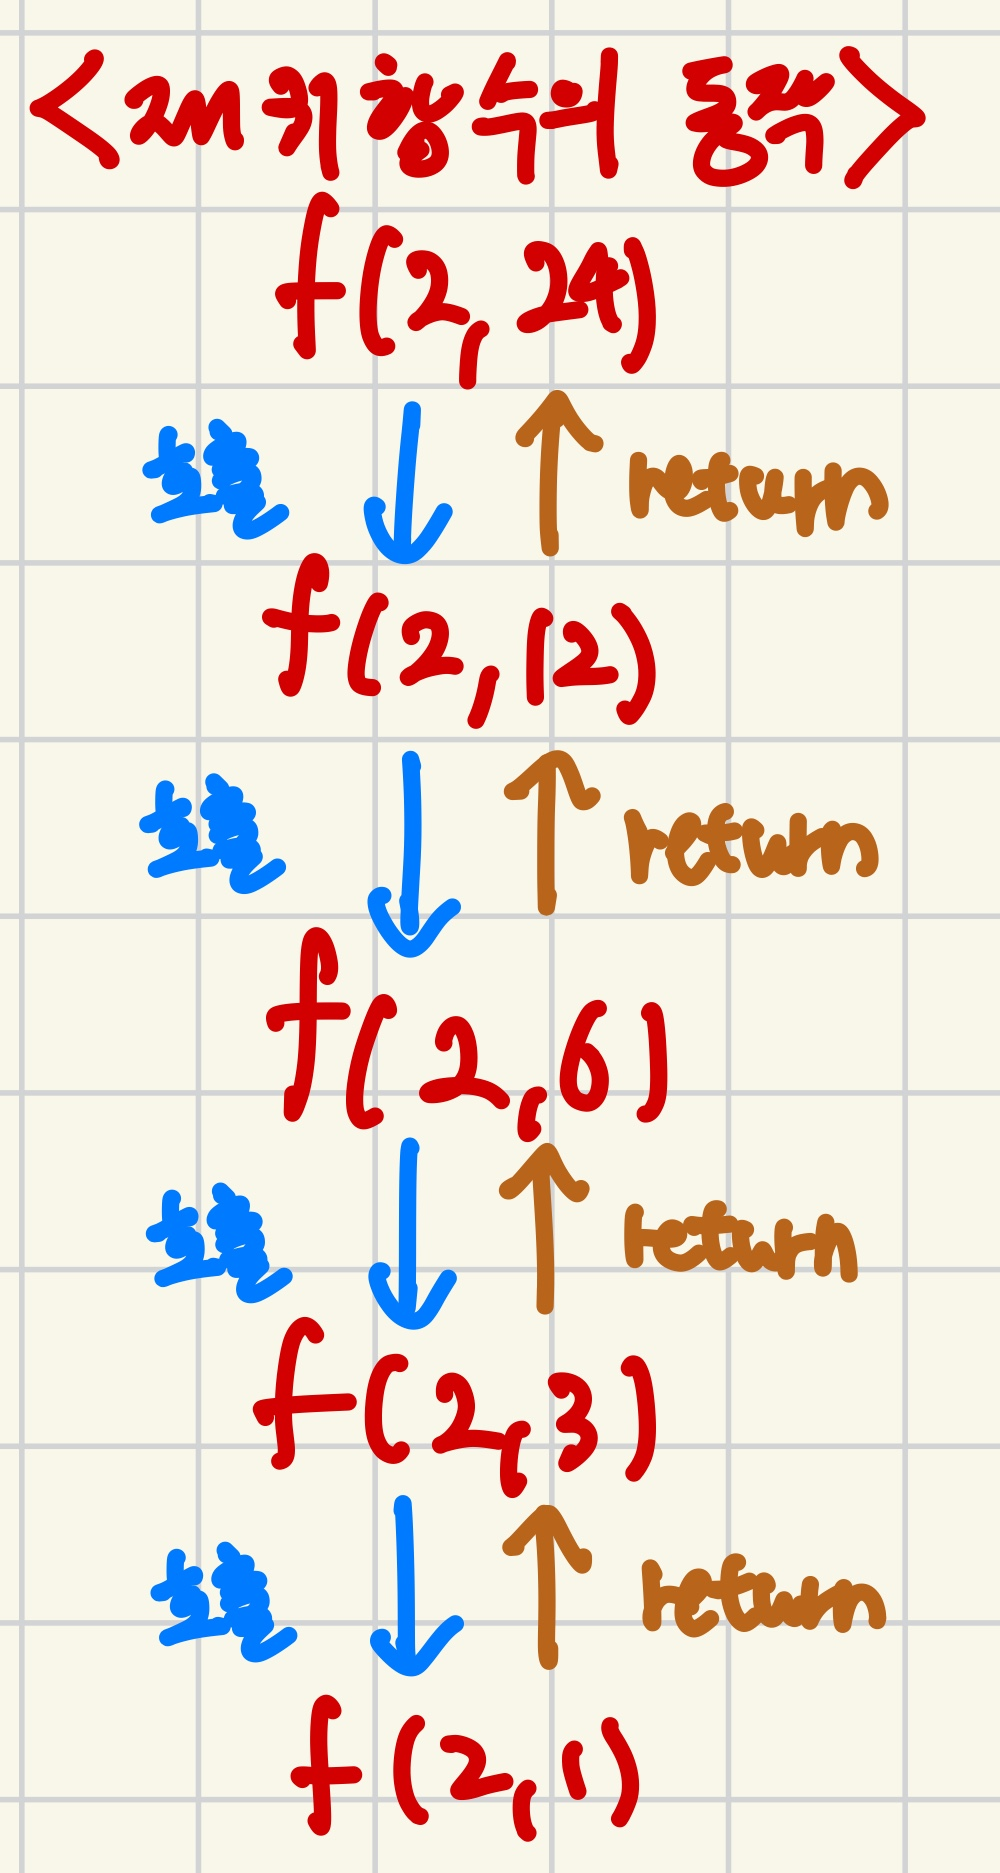 <재귀함수의 동작>
f(2, 24)
호출 return
f(2,12)
호출 return
f(2,6)
호출 return
f(2,3)
호출 return
f(2,1)